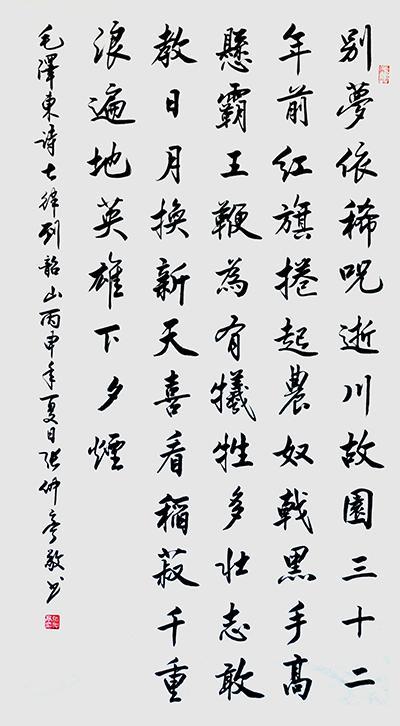 别夢依稀呪逝川故園三十二
年前紅旗捲起農奴戟黑手高
懸霸王鞭為有犧牲多壯志敢
教日月換新天喜看稻菽千重
浪遍地英雄下夕煙
毛澤東詩七律到韶山丙申年夏日張仲亭敬书